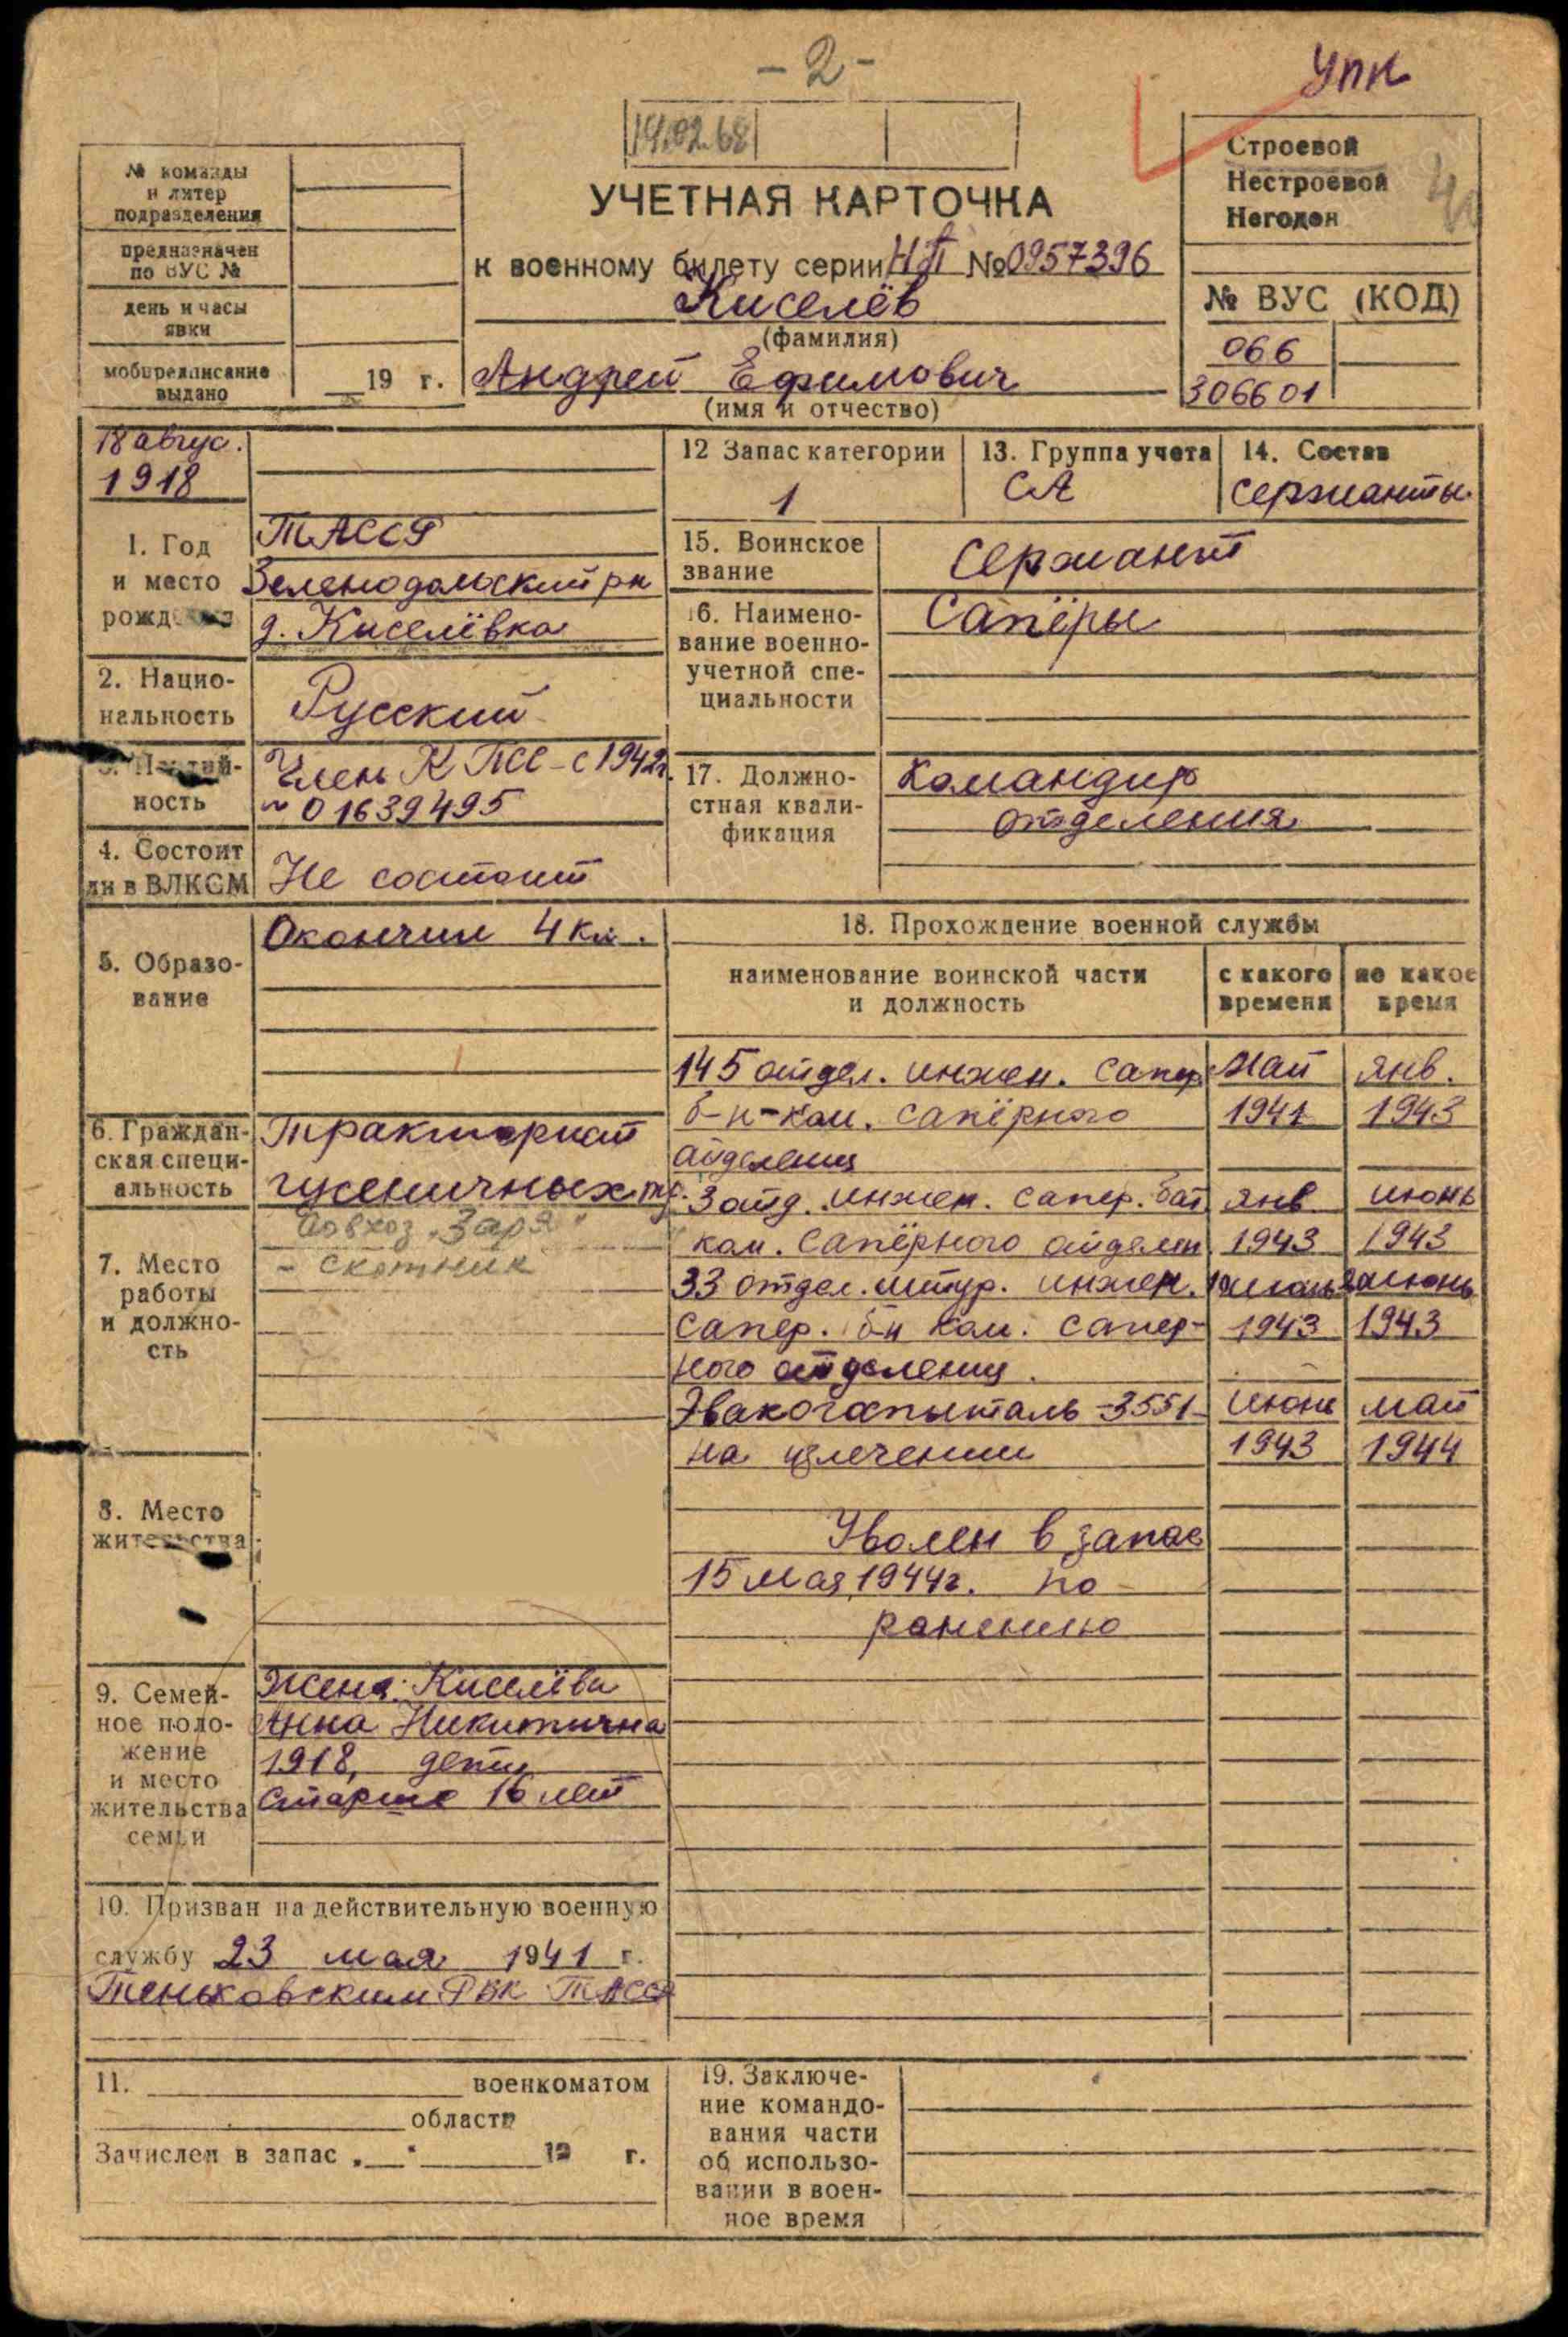 - 2 -
УПК
14.02.68
№ команды
и литер
подразделения
предназначен
по ВУС №
день и часы
явки
мобпредписание
выдано
19 г.
УЧЕТНАЯ КАРТОЧКА
к военному билету серии НП №0957396
Киселёв
(фамилия)
Андрей Ефимович
(имя и отчество)
Строевой
Нестроевой
Негоден
№ ВУС (КОД)
066
306601
18 авгус.
1918
1. Год
и место
рождения
ТАССР
Зеленодольский рн
д. Киселёвка
2. Нацио-
нальность
Русский
3. Партий-
ность
Член КПСС - с 1942г.
~ 01639495
4. Состоит
ли в ВЛКСМ
Не состоит
5. Образо-
вание
Окончил 4 кл.
6. Граждан-
ская специ-
альность
Тракторист
гусеничных тр.
7. Место
работы
и должно-
сть
Совхоз "Заря"
- скотник
8. Место
жительства
9. Семей-
ное поло-
жение
и место
жительства
семьи
Жена: Киселёва
Анна Никитична
1918, дети
старше 16 лет
10. Призван на действительную военную
службу 23 мая 1941 г.
Теньковским РВК ТАССР
11. военкоматом
области
Зачислен в запас " " 19 г.
12 Запас категории
1
13. Группа учета
СА
14. Состав
Сержанты
15. Воинское
звание
Сержант
16. Наимено-
вание военно-
учетной спе-
циальности
Сапёры
17. Должно-
стная квали-
фикация
Командир
отделения
18. Прохождение военной службы
наименование воинской части
и должность
с какого
времени
по какое
время
145 отдел. инжен. сапер. май янв.
б-н-ком. сапёрного 1941 1943
отделения
3 отд. инжен. сапер. бат янв июнь
ком. сапёрного отделен. 1943 1943
33 отдел. штур. инжен. июнь июнь
сапер. б-н ком. сапер- 1943 1943
ного отделения.
Эвакогоспыталь -3551- июнь май
на излечении 1943 1944
Уволен в запас
15 мая 1944г. по
ранению
19. Заключе-
ние командо-
вания части
об использо-
вании в воен-
ное время